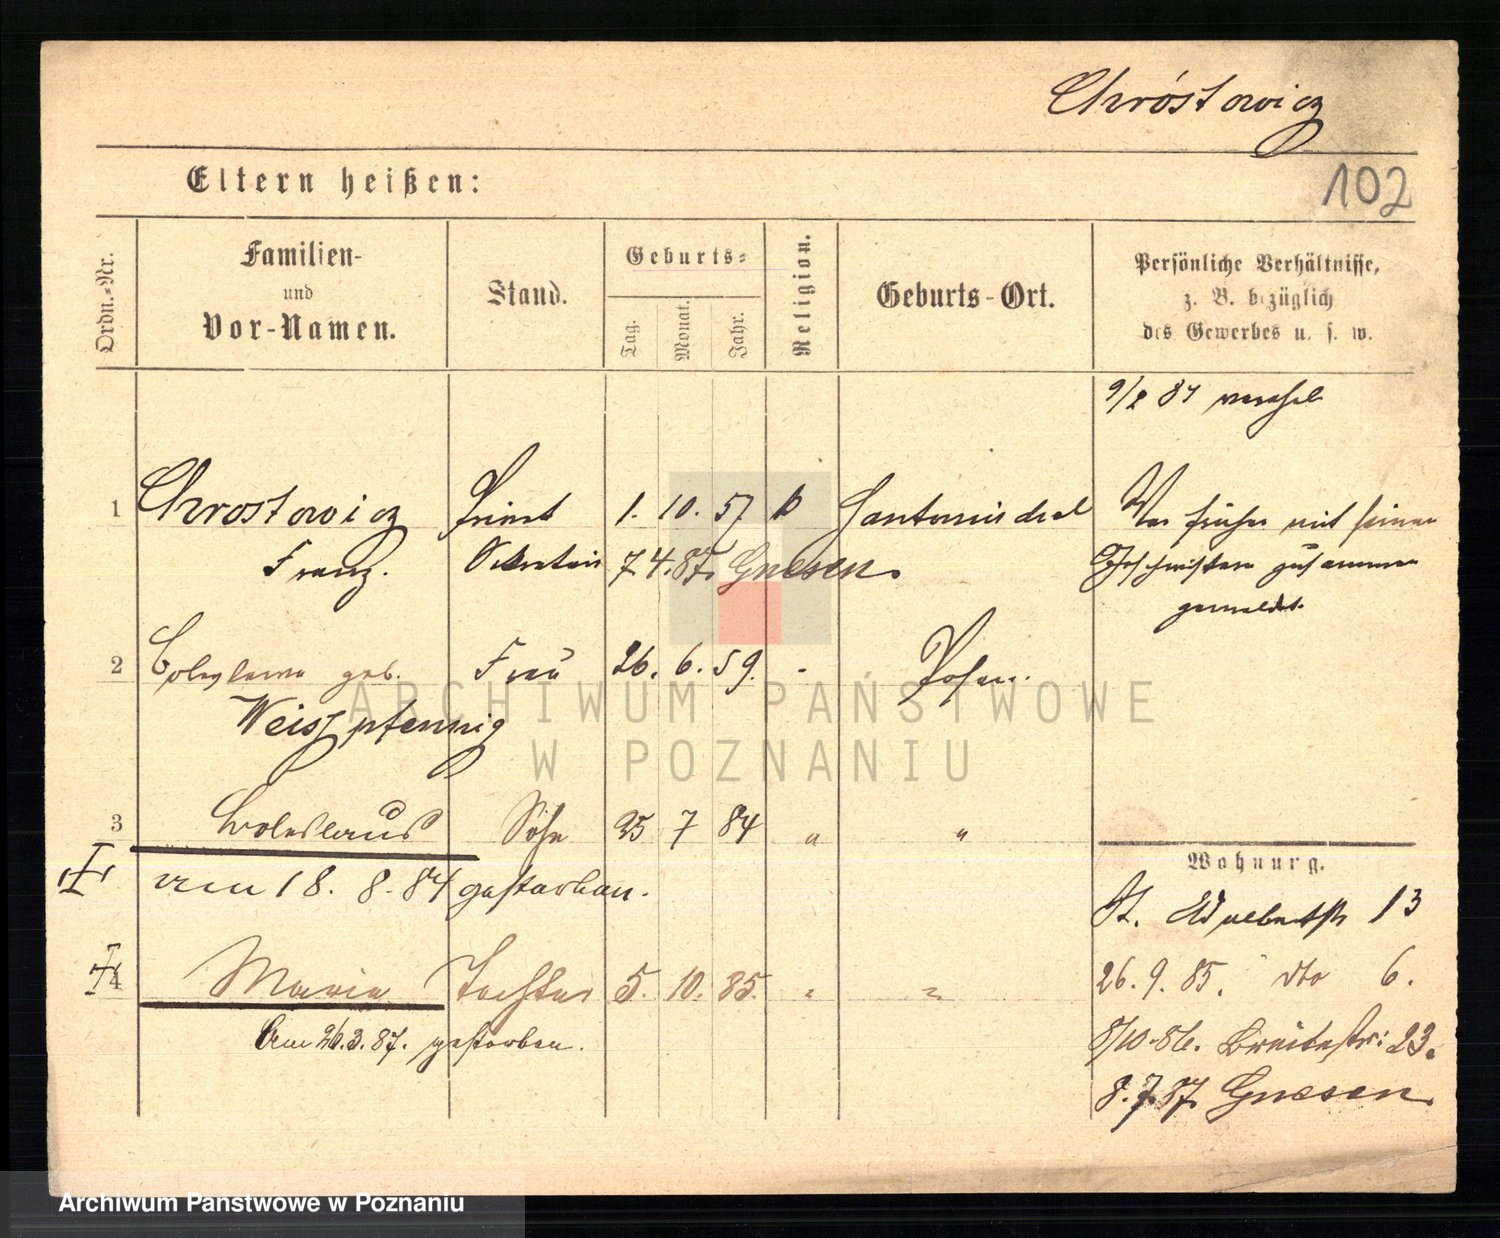 Chróstowicz
102
Eltern heißen:
Ordn.-Nr.
Familien-
und
Vor-Namen.
Stand.
Geburts-
Tag.
Monat.
Jahr.
Religion.
Geburts-Ort.
Persönliche Verhältnisse,
z. B. bezüglich
des Gewerbes u. s. w.
1 Chrostowicz 1. 10. 57 k Santomischel War früher mit seinen
Franz. 7.4.87. Gnesen. Geschwistern zusammen
gemeldet.
2 Boleslawa geb. Frau 26. 6. 59. Posen.
Weiszpfennig
3 Boleslaus Sohn 25 7 84 " "
am 18. 8. 84 gestorben.
4 Marie Tochter 5. 10. 85. " "
Am 26.3.87. gestorben.
Wohnung.
St. Adalbertstr 13
26. 9. 85. dto 6.
8/10.86. Breitestr: 23.
8.7.87. Gnesen.
ARCHIWUM PAŃSTWOWE
W POZNANIU
Archiwum Państwowe w Poznaniu